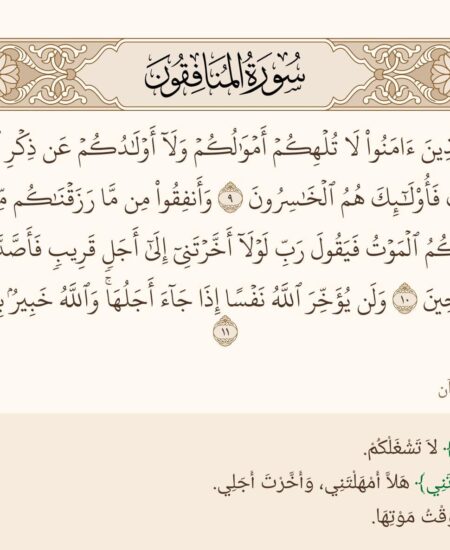 سُورَةُ المُنَافِقُونَ
ءَامَنُواْ لَا تُلۡهِكُمۡ أَمۡوَٰلُكُمۡ وَلَآ أَوۡلَٰدُكُمۡ عَن ذِكۡرِ
فَأُوْلَٰٓئِكَ هُمُ ٱلۡخَٰسِرُونَ ٩ وَأَنفِقُواْ مِن مَّا رَزَقۡنَٰكُم
ٱلۡمَوۡتُ فَيَقُولَ رَبِّ لَوۡلَآ أَخَّرۡتَنِيٓ إِلَىٰٓ أَجَلٖ قَرِيبٖ
١٠ وَلَن يُؤَخِّرَ ٱللَّهُ نَفۡسًا إِذَا جَآءَ أَجَلُهَاۚ وَٱللَّهُ خَبِيرُۢ
١١
لاَ تَشْغَلْكُمْ.
هَلاَّ أَمْهَلْتَنِي، وَأَخَّرْتَ أَجَلِي.
مَوْتِهَا.